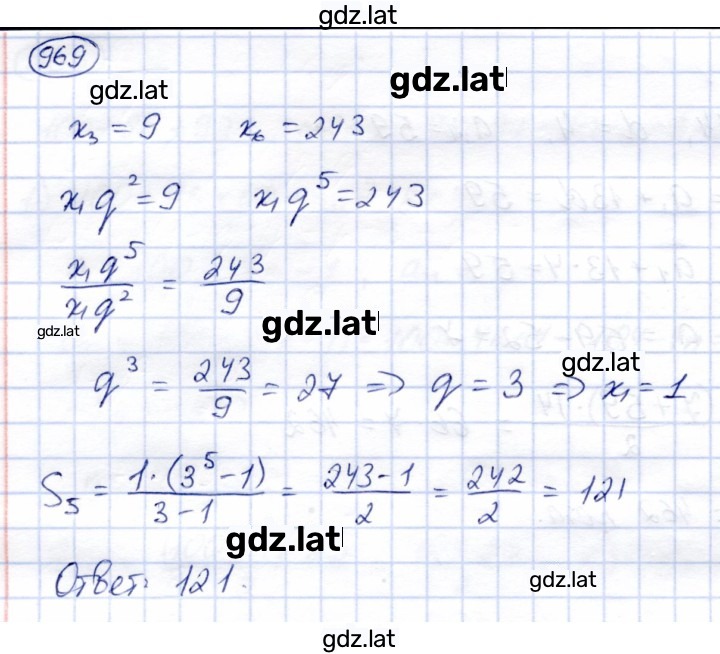 gdz.lat
969
gdz.lat gdz.lat
x₃ = 9 x₆ = 243
x₁q² = 9 x₁q⁵ = 243
x₁q⁵ / x₁q² = 243 / 9
gdz.lat gdz.lat
gdz.lat
q³ = 243 / 9 = 27 => q = 3 => x₁ = 1
S₅ = 1·(3⁵-1) / 3-1 = 243-1 / 2 = 242 / 2 = 121
gdz.lat
Ответ: 121.
gdz.lat
gdz.lat